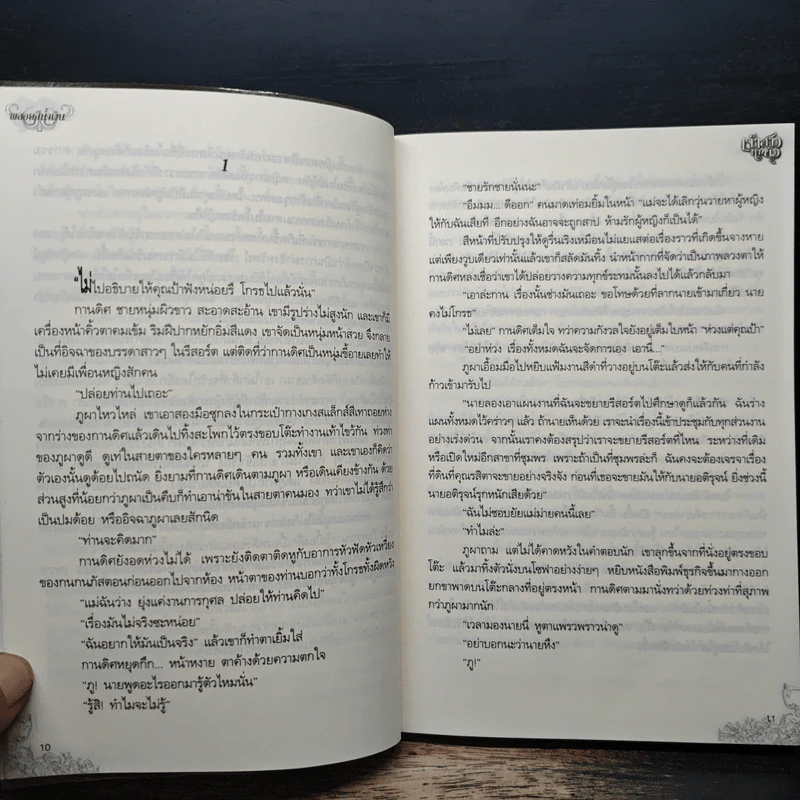 พลอยสีน้ำเงิน
1
"ไม่ไปอธิบายให้คุณป้าฟังหน่อยรึ โกรธไปแล้วนั่น"
กานดิศ ชายหนุ่มผิวขาว สะอาดสะอ้าน เขามีรูปร่างไม่สูงนัก และเขาก็มี
เครื่องหน้าคิ้วตาคมเข้ม ริมฝีปากหยักอิ่มสีแดง เขาจัดเป็นหนุ่มหน้าสวย จึงกลาย
เป็นที่อิจฉาของบรรดาสาวๆ ในรีสอร์ต แต่ติดที่ว่ากานดิศเป็นหนุ่มขี้อายเลยทำให้
ไม่เคยมีเพื่อนหญิงสักคน
"ปล่อยท่านไปเถอะ"
ภูผาไหวไหล่ เขาเอาสองมือซุกลงในกระเป๋ากางเกงสแล็กส์สีเทาถอยห่าง
จากร่างของกานดิศแล้วเดินไปทิ้งสะโพกไว้ตรงขอบโต๊ะทำงานเท้าไขว้กัน ท่วงท่า
ของภูผาดูดี ดูเท่ในสายตาของใครหลายๆ คน รวมทั้งเขา และเขาเองก็คิดว่า
ตัวเองนั้นดูด้อยไปถนัด ยิ่งยามที่กานดิศเดินตามภูผา หรือเดินเคียงข้างกัน ด้วย
ส่วนสูงที่น้อยกว่าภูผาเป็นคืบก็ทำเอาน่าขันในสายตาคนมอง ทว่าเขาไม่ได้รู้สึกว่า
เป็นปมด้อย หรืออิจฉาภูผาเลยสักนิด
"ท่านจะคิดมาก"
กานดิศยังอดห่วงไม่ได้ เพราะยังติดตาติดหูกับอาการหัวฟัดหัวเหวี่ยง
ของกนกนภัสตอนก่อนออกไปจากห้อง หน้าตาของท่านบอกว่าทั้งโกรธทั้งผิดหวัง
"แม่ฉันว่าง ยุ่งแค่งานการกุศล ปล่อยให้ท่านคิดไป"
"เรื่องมันไม่จริงซะหน่อย"
"ฉันอยากให้มันเป็นจริง" แล้วเขาก็ทำตาเยิ้มใส่
กานดิศหยุดกึก... หน้าหงาย ตาค้างด้วยความตกใจ
"ภู! นายพูดอะไรออกมารู้ตัวไหมนั่น"
"รู้สิ! ทำไมจะไม่รู้"
10
"ชายรักชายนั่นนะ"
"อืมมม... ดีออก" คนมาดเท่อมยิ้มในหน้า "แม่จะได้เลิกวุ่นวายหาผู้หญิง
ให้กับฉันเสียที อีกอย่างฉันอาจจะถูกสาป ห้ามรักผู้หญิงก็เป็นได้"
สีหน้าที่ปรับปรุงให้ดูรื่นเริงเหมือนไม่แยแสต่อเรื่องราวที่เกิดขึ้นจางหาย
แต่เพียงวูบเดียวเท่านั้นแล้วเขาก็สลัดมันทิ้ง นำหน้ากากที่จัดว่าเป็นภาพลวงตาให้
กานดิศหลงเชื่อว่าเขาได้ปล่อยวางความทุกข์ระทมนั้นลงไปได้แล้วกลับมา
"เอาล่ะกาน เรื่องนั้นช่างมันเถอะ ขอโทษด้วยที่ลากนายเข้ามาเกี่ยว นาย
คงไม่โกรธ"
"ไม่เลย" กานดิศเต็มใจ ทว่าความกังวลใจยังอยู่เต็มใบหน้า "ห่วงแต่คุณป้า"
"อย่าห่วง เรื่องทั้งหมดฉันจะจัดการเอง เอานี่..."
ภูผาเอื้อมมือไปหยิบแฟ้มงานสีดำที่วางอยู่บนโต๊ะแล้วส่งให้กับคนที่กำลัง
ก้าวเข้ามารับไป
"นายลองเอาแผนงานที่ฉันจะขยายรีสอร์ตไปศึกษาดูก็แล้วกัน ฉันร่าง
แผนทั้งหมดไว้คร่าวๆ แล้ว ถ้านายเห็นด้วย เราจะนำเรื่องนี้เข้าประชุมกับทุกส่วนงาน
อย่างเร่งด่วน จากนั้นเราคงต้องสรุปว่าเราจะขยายรีสอร์ตที่ไหน ระหว่างที่เดิม
หรือเปิดใหม่อีกสาขาที่ชุมพร เพราะถ้าเป็นที่ชุมพรล่ะก็ ฉันคงจะต้องเจรจาเรื่อง
ที่ดินที่คุณรสิตาจะขายอย่างจริงจัง ก่อนที่เธอจะขายมันให้กับนายอติรุจน์ ยิ่งช่วงนี้
นายอติรุจน์รุกหนักเสียด้วย"
"ฉันไม่ชอบยัยแม่ม่ายคนนี้เลย"
"ทำไมล่ะ"
ภูผาถาม แต่ไม่ได้คาดหวังในคำตอบนัก เขาลุกขึ้นจากที่นั่งอยู่ตรงขอบ
โต๊ะ แล้วมาทิ้งตัวนั่งบนโซฟาอย่างง่ายๆ หยิบหนังสือพิมพ์ธุรกิจขึ้นมากางออก
ยกขาพาดบนโต๊ะกลางที่อยู่ตรงหน้า กานดิศตามมานั่งทว่าด้วยท่วงท่าที่สุภาพ
กว่าภูผามากนัก
"เวลามองนายนี่ หูตาแพรวพราวน่าดู"
"อย่าบอกนะว่านายหึง"
"ภู!"
11